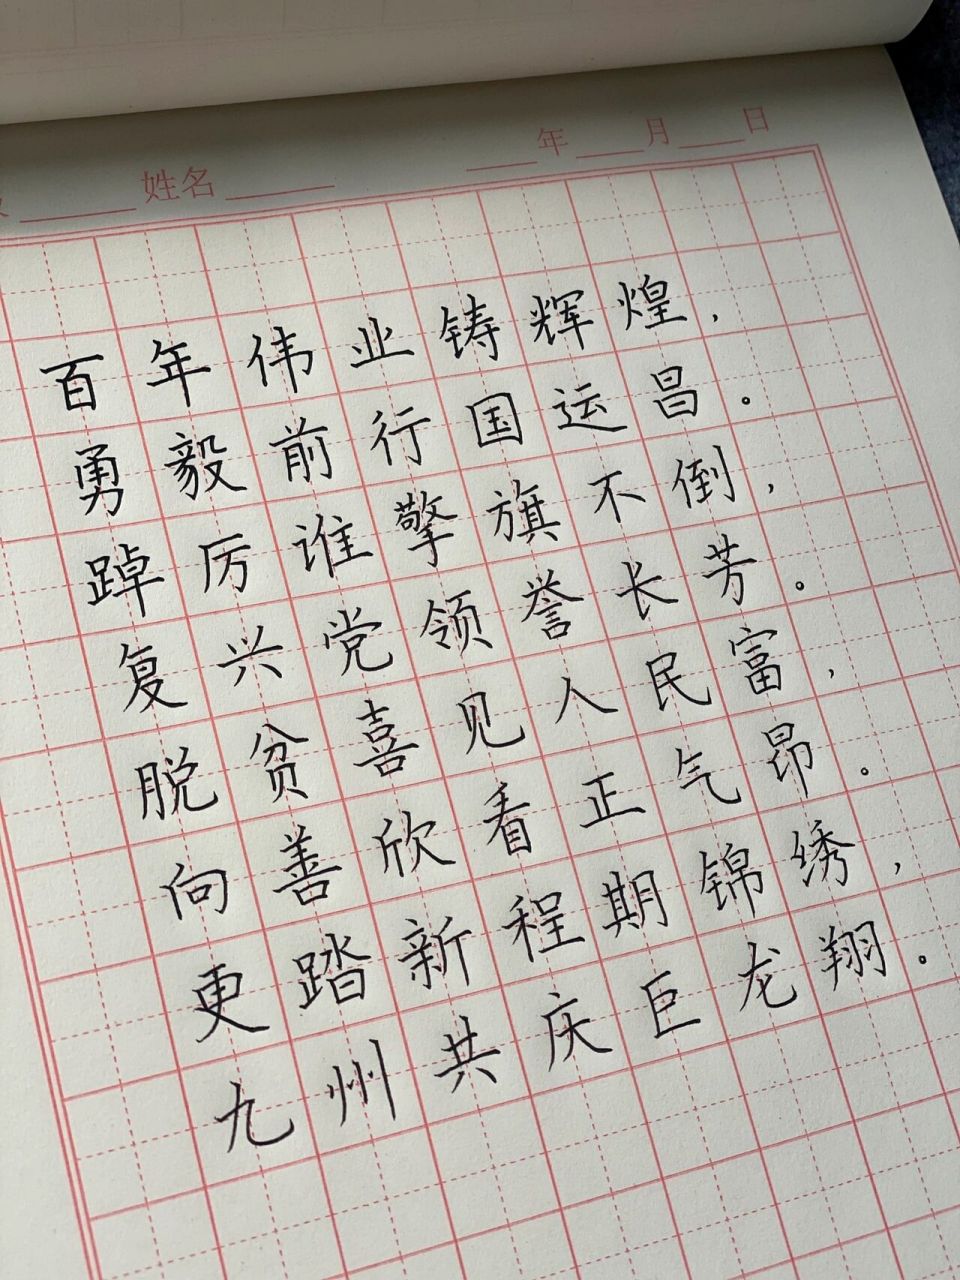 姓名
年 月 日
百年伟业铸辉煌，
勇毅前行国运昌。
踔厉谁擎旗不倒，
复兴党领誉长芳。
脱贫喜见人民富，
向善欣看正气昂。
更踏新程期锦绣，
九州共庆巨龙翔。